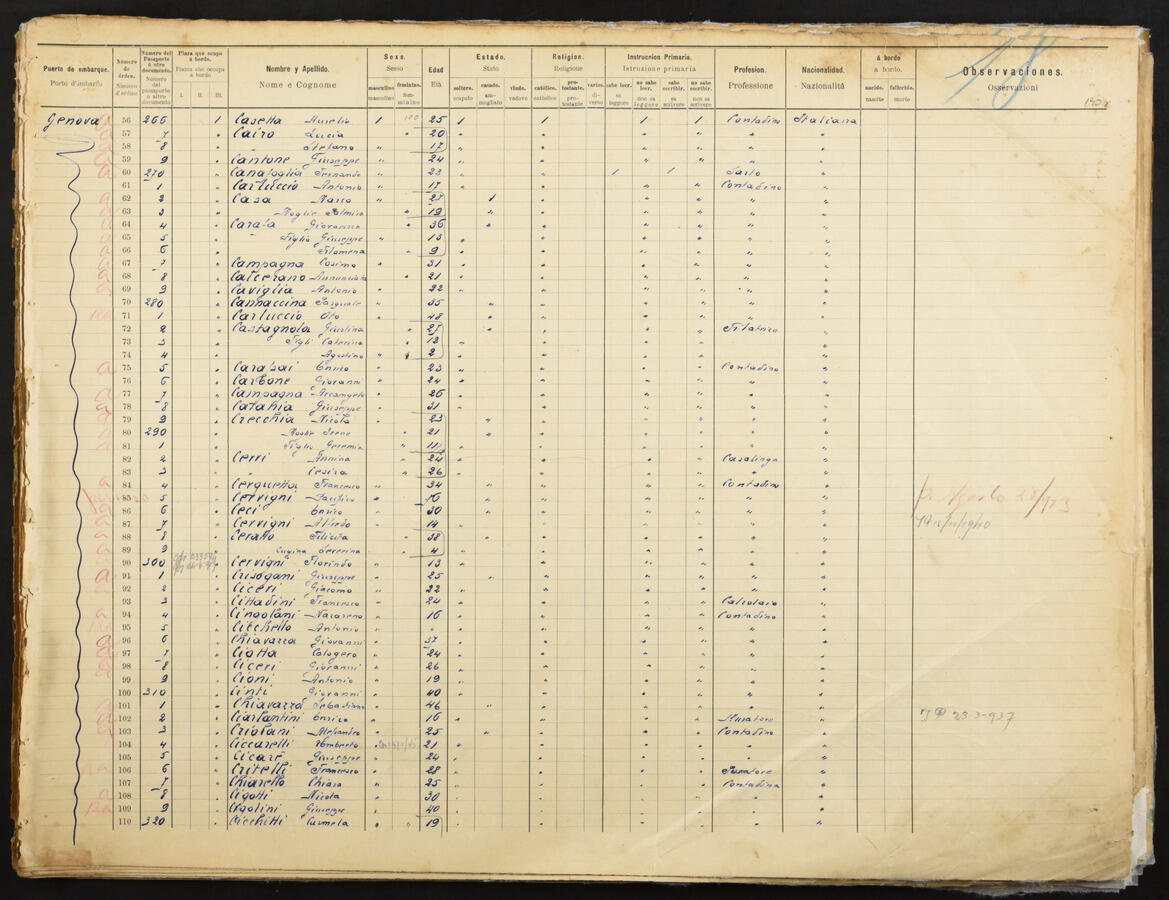 Puerto de embarque.
Porto d'imbarco
Número de órden.
Numero d'ordine
Número del Pasaporte ó otro documento.
Numero del Passaporte o altro documento
Plaza que ocupa á bordo.
Piazza che occupa a bordo
I. II. III.
Nombre y Apellido.
Nome e Cognome
Sexo.
Sesso
masculino femenino.
Edad
Età
Estado.
Stato
soltero. casado. viudo.
scapolo ammogliato vedovo
Religion.
Religione
católico. protestante. varios.
cattolico protestante diverso
Instruccion Primaria.
Istruzione primaria
sabe leer. no sabe leer. sabe escribir. no sabe escribir.
sa leggere non sa leggere sa scrivere non sa scrivere
Profesion.
Professione
Nacionalidad.
Nazionalità
á bordo
a bordo.
nacido. fallecido.
nascite morte
Observaciones.
Osservazioni
Genova 56 266 1 Casetta Aurelio 1 25 1 1 1 1 Contadino Italiana
57 7 " Cairo Lucia " 20 " "
58 8 " " Stefano " 17 " "
59 9 " Cantone Giuseppe " 24 " "
60 270 " Fernando " 23 " 1 1 Sarto "
61 1 " Cartuccio Antonio " 17 " Contadino "
62 2 " Casa Marco " 27 " "
63 3 " Moglie Palmira " 19 " "
64 4 " Giovanna " 36 " "
65 5 " Figlio Giuseppe " 13 " "
66 6 " Filomena " 9 " "
67 7 " Campagna Cosimo " 31 " "
68 8 " Annunziata " 21 " "
69 9 " Caviglia Antonio " 22 " "
70 280 " Cannaccina Pasquale " 35 " "
71 1 " Carluccio Oto " 48 " "
72 2 " Castagnola Giustina " 27 " Filatrice "
73 3 " Figli Caterina " 12 " "
74 4 " Agostino " 2 " "
75 5 " Enrico " 23 " Contadino "
76 6 " Carbone Giovanni " 24 " "
77 7 " Campagna Arcangelo " 26 " "
78 8 " Catania Giuseppe " 31 " "
79 9 " Crecchia Nicola " 23 " "
80 290 " Moglie Irene " 21 " "
81 1 " Figlio Geremia " 11 " "
82 2 " Cerri Annina " 24 " Casalinga "
83 3 " " Cesira " 26 " "
84 4 " Cerquetta Francesco " 34 " Contadino "
85 5 " Cervigni Pacifico " 16 " "
86 6 " Ceci Enrico " 30 " "
87 7 " Cervigni Alfredo " 14 " "
88 8 " Cerallo Felicita " 38 " "
89 9 " Cugina Severina " 4 " "
90 300 " Cervigni Florindo " 13 " "
91 1 " Crisogani Giuseppe " 25 " "
92 2 " Ciceri Giacomo " 22 " "
93 3 " Cittadini Francesco " 24 " Calzolaio "
94 4 " Cingolani Nazareno " 16 " Contadino "
95 5 " Cicchello Antonio " "
96 6 " Chiavazza Giovanni " 37 " "
97 7 " Ciotta Calogero " 24 " "
98 8 " Ciceri Giovanni " 26 " "
99 9 " Cioni Antonio " 19 " "
100 310 " Cinti Giovanni " 40 " "
101 1 " Chiavazza Sebastiano " 46 " "
102 2 " Ciarlantini Enrico " 16 " Muratore "
103 3 " Criolani Alejandro " 25 " Contadino "
104 4 " Ciccarelli Umberto " 21 " "
105 5 " Cicaré Giuseppe " 24 " "
106 6 " Critelli Francesco " 28 " "
107 7 " Chiarello Chiara " 25 " Contadina "
108 8 " Cigotti Nicola " 30 " "
109 9 " Giuseppe " 40 " "
110 320 " Cicchitti Carmela " 19 " "